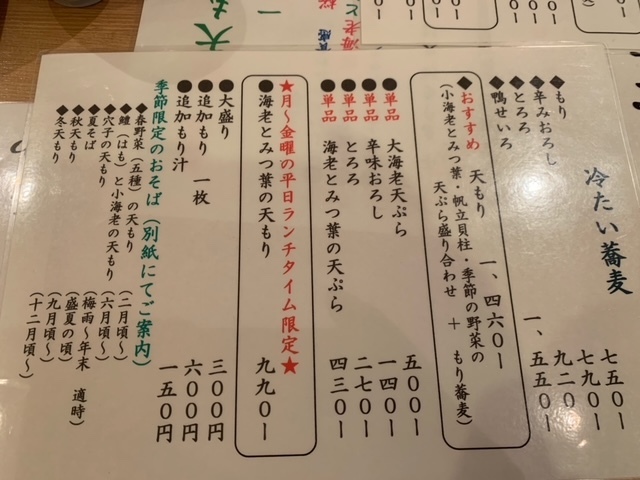 冷たい蕎麦
◆もり 七五〇ー
◆辛みおろし 七九〇ー
◆とろろ 九二〇ー
◆鴨せいろ 一、五五〇ー
◆おすすめ 天もり 一、四六〇ー
(小海老とみつ葉・帆立貝柱・季節の野菜の
天ぷら盛り合わせ + もり蕎麦)
●単品 大海老天ぷら 五〇〇ー
●単品 辛味おろし 一四〇ー
●単品 とろろ 二七〇ー
●単品 海老とみつ葉の天ぷら 四三〇ー
★月~金曜の平日ランチタイム限定★
●海老とみつ葉の天もり 九九〇ー
●大盛り 三〇〇円
●追加もり 一枚 六〇〇円
●追加もり汁 一五〇円
季節限定のおそば(別紙にてご案内)
◆春野菜(五種)の天もり (二月頃~)
◆鱧(はも)と小海老の天もり (六月頃~)
◆穴子の天もり (梅雨~年末 適時)
◆夏そば (盛夏の頃)
◆秋天もり (九月頃~)
◆冬天もり (十二月頃~)